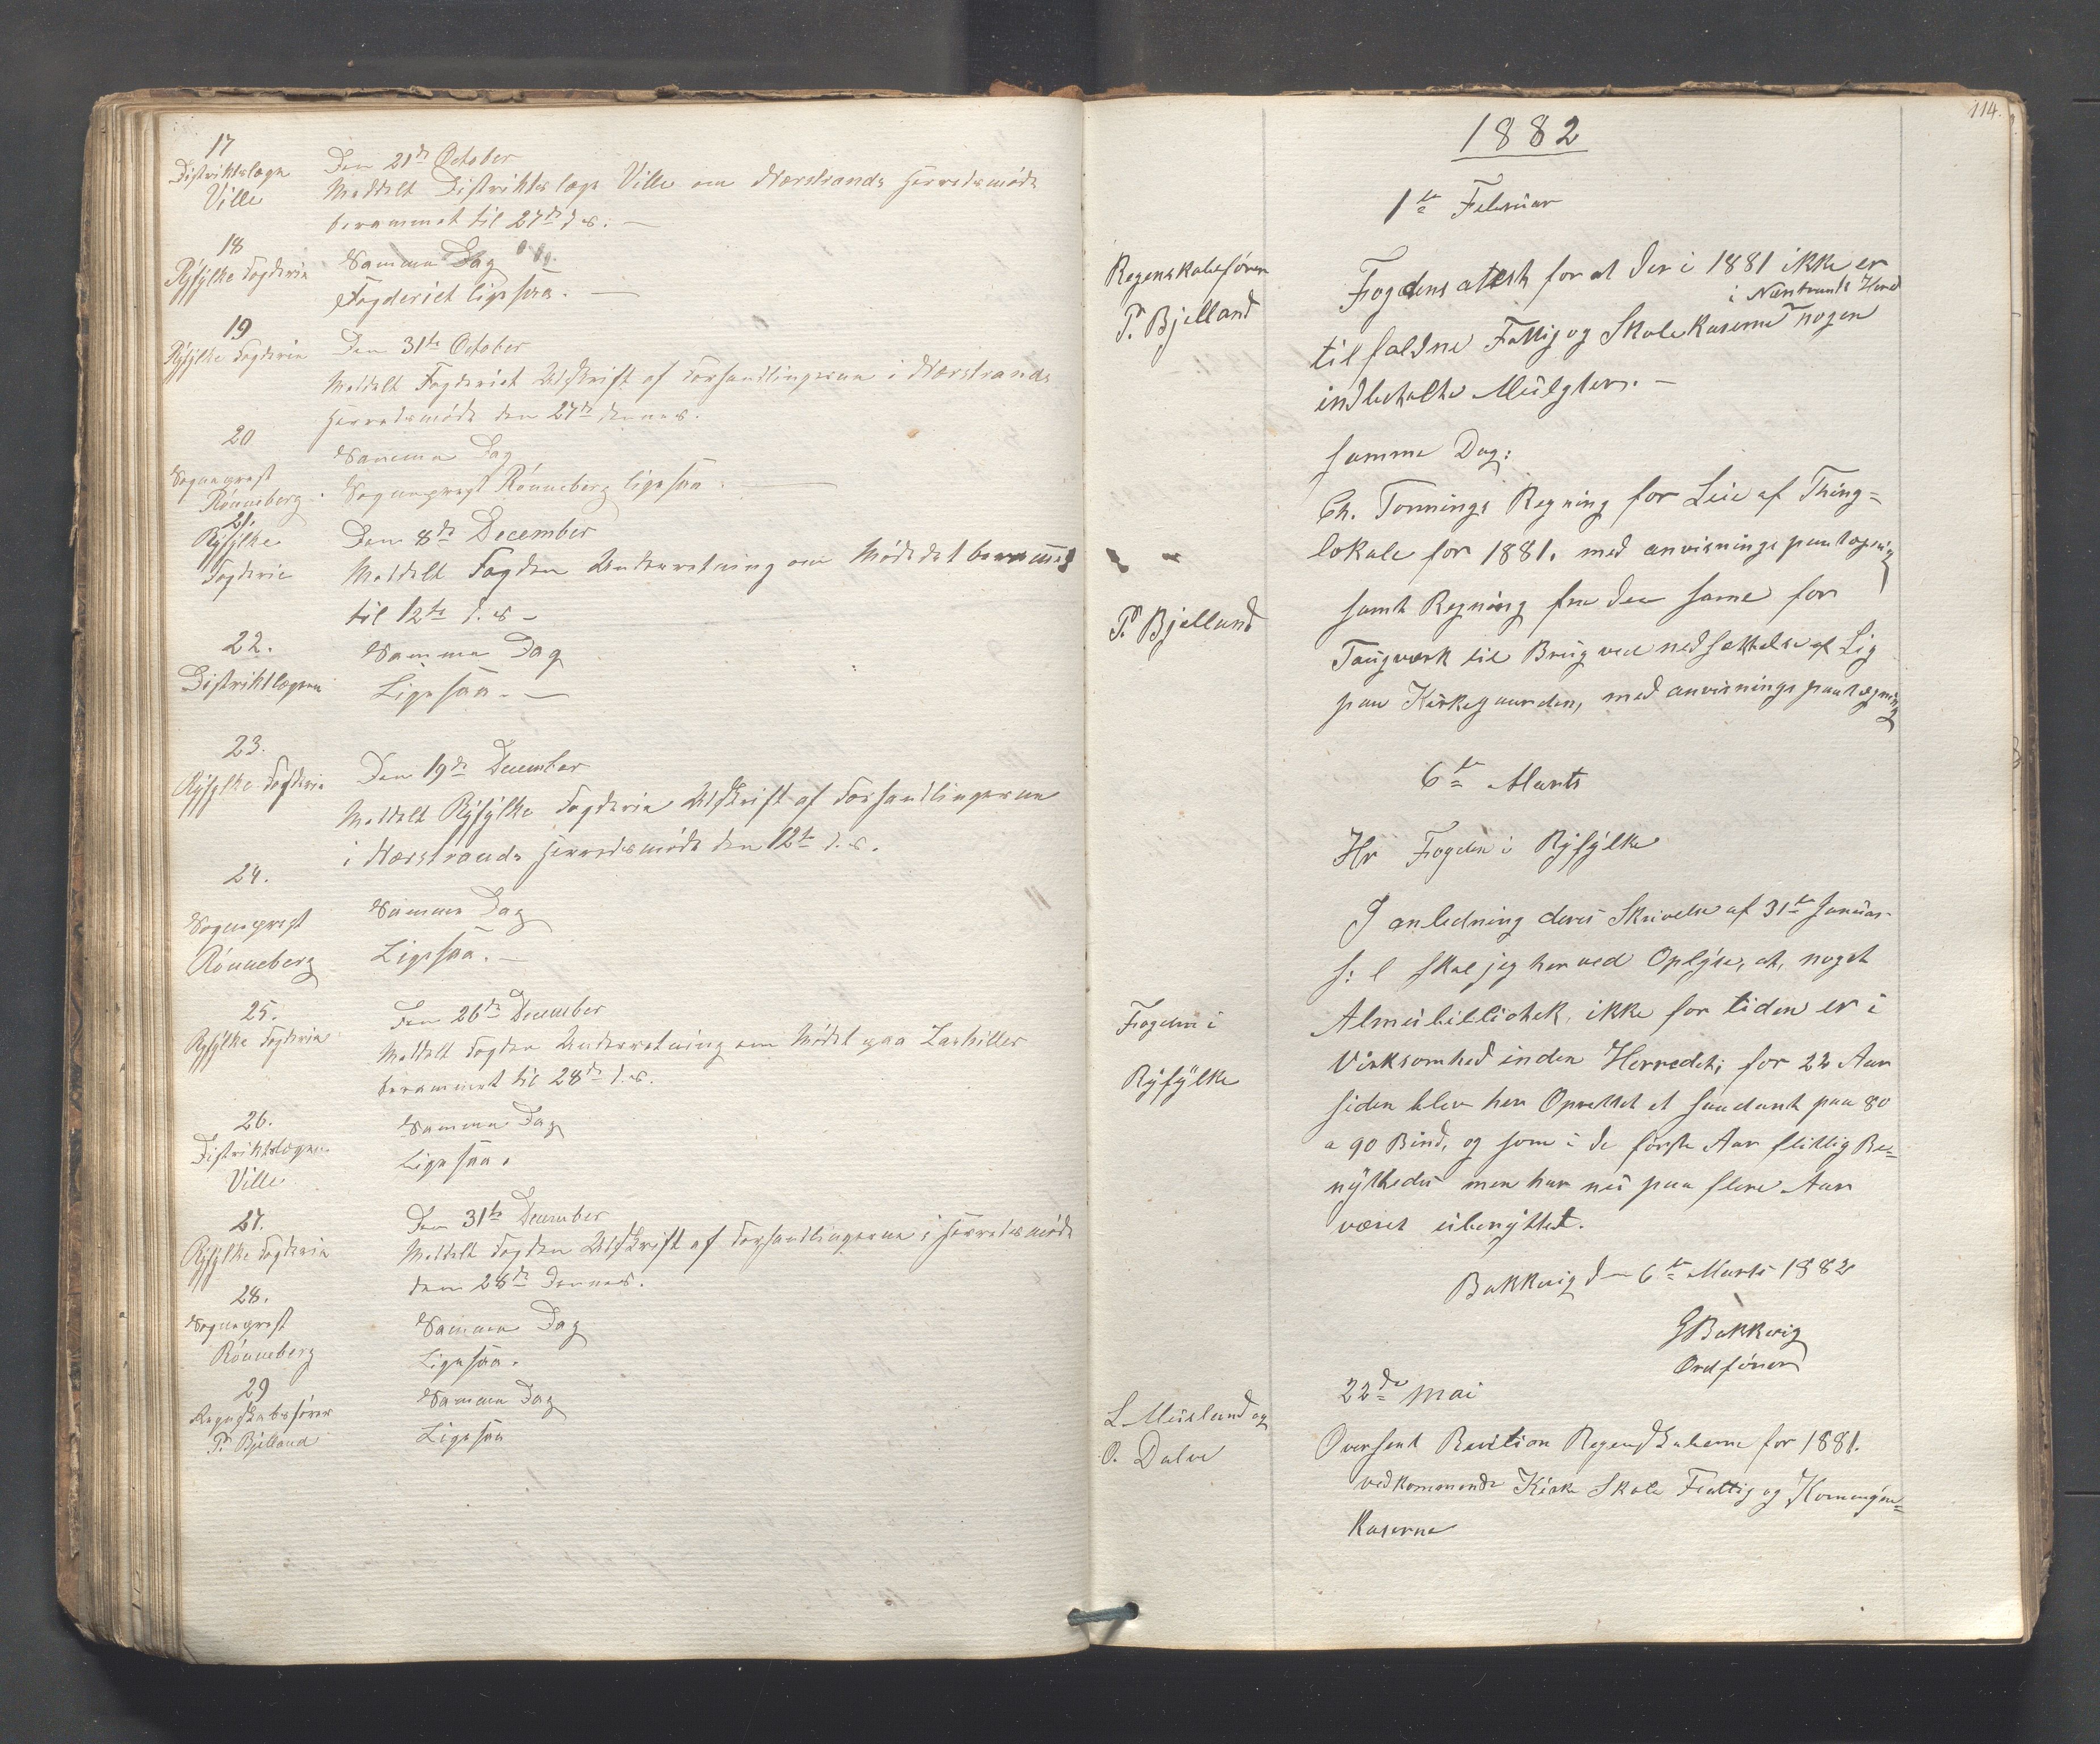 17
Distriktslæge
Ville
Den 21de October
Meddelt Distriktslæge Ville om Nærstrands Herredsmöde
berammet til 27de d. s. —
18
Ryfylke Fogderie
Samme Dag
Fogderiet ligesaa. —
19
Ryfylke Fogderie
Den 31te October
Meddelt Fogderiet Udskrift af Forhandlingerne i Nærstrands
Herredsmöde den 27de dennes.
20
Sogneprest
Rönneberg.
Samme Dag
Sogneprest Rönneberg ligesaa. —
21.
Ryfylke
Fogderie
Den 8de December
Meddelt Fogden Underretning om Möde det berammet
til 12te d. s –
22.
Distriktlægen
Samme Dag
Ligesaa. —
23.
Ryfylke Fogderie
Den 19de December
Meddelt Ryfylke Fogderie Udskrift af Forhandlingerne
i Nærstrands Herredsmöde den 12te d. s.
24.
Sogneprest
Rönneberg
Samme Dag
Ligesaa. —
25.
Ryfylke Fogderie
Den 26de December
Meddelt Fogden Underretning om Mödet paa
berammet til 28de d. s.
26.
Distriktslægen
Ville
Samme Dag
Ligesaa.
27.
Ryfylke Fogderie
Den 31te December
Meddelt Fogden Udskrift af Forhandlingerne i Herredsmöde
den 28de Dennes.
28.
Sogneprest
Rönneberg
Samme Dag
Ligesaa.
29
Regnskabsförer
P. Bjelland
Samme Dag
Ligesaa
114.
1882
1te Februar
Regenskabsförer
P. Bjelland
Fogdens atest for at der i 1881 ikke er
i Nærstrands Hered
tilfaldne Fattig og Skolekaserne nogen
indbetalte Mulgter. —
samme Dag:
Ch. Tonnings Regning for Leie af Thing=
lokale for 1881. med anvisnings paategning
P. Bjelland
samt Regning fra den same for
Taugværk til Brug ved nedsættelse af Lig
paa Kirkegaarden, med anvisnings paategning
6te Marts
Hr Fogden i Ryfylke
Fogden i
Ryfylke
I anledning deres Skrivelse af 31te Januar
f: l skal jeg herved Oplyse, at, noget
Almubibliothek, ikke for tiden er i
Virksomhed inden Herredet; for 22 Aar
siden blev her Oprettet et saadant paa 80
a 90 Bind, og som i de förste Aar flittig Be=
nyttedes men har nu paa flere Aar
været ubenyttet.
Bakkevig d – 6te Marts 1882
GBakkevig
Ordförer
22de Mai
L Musland og
O. Dalve
Oversent Revition Regenskaberne for 1881.
vedkommende Kirke Skole Fattig og Komunne=
Kaserne